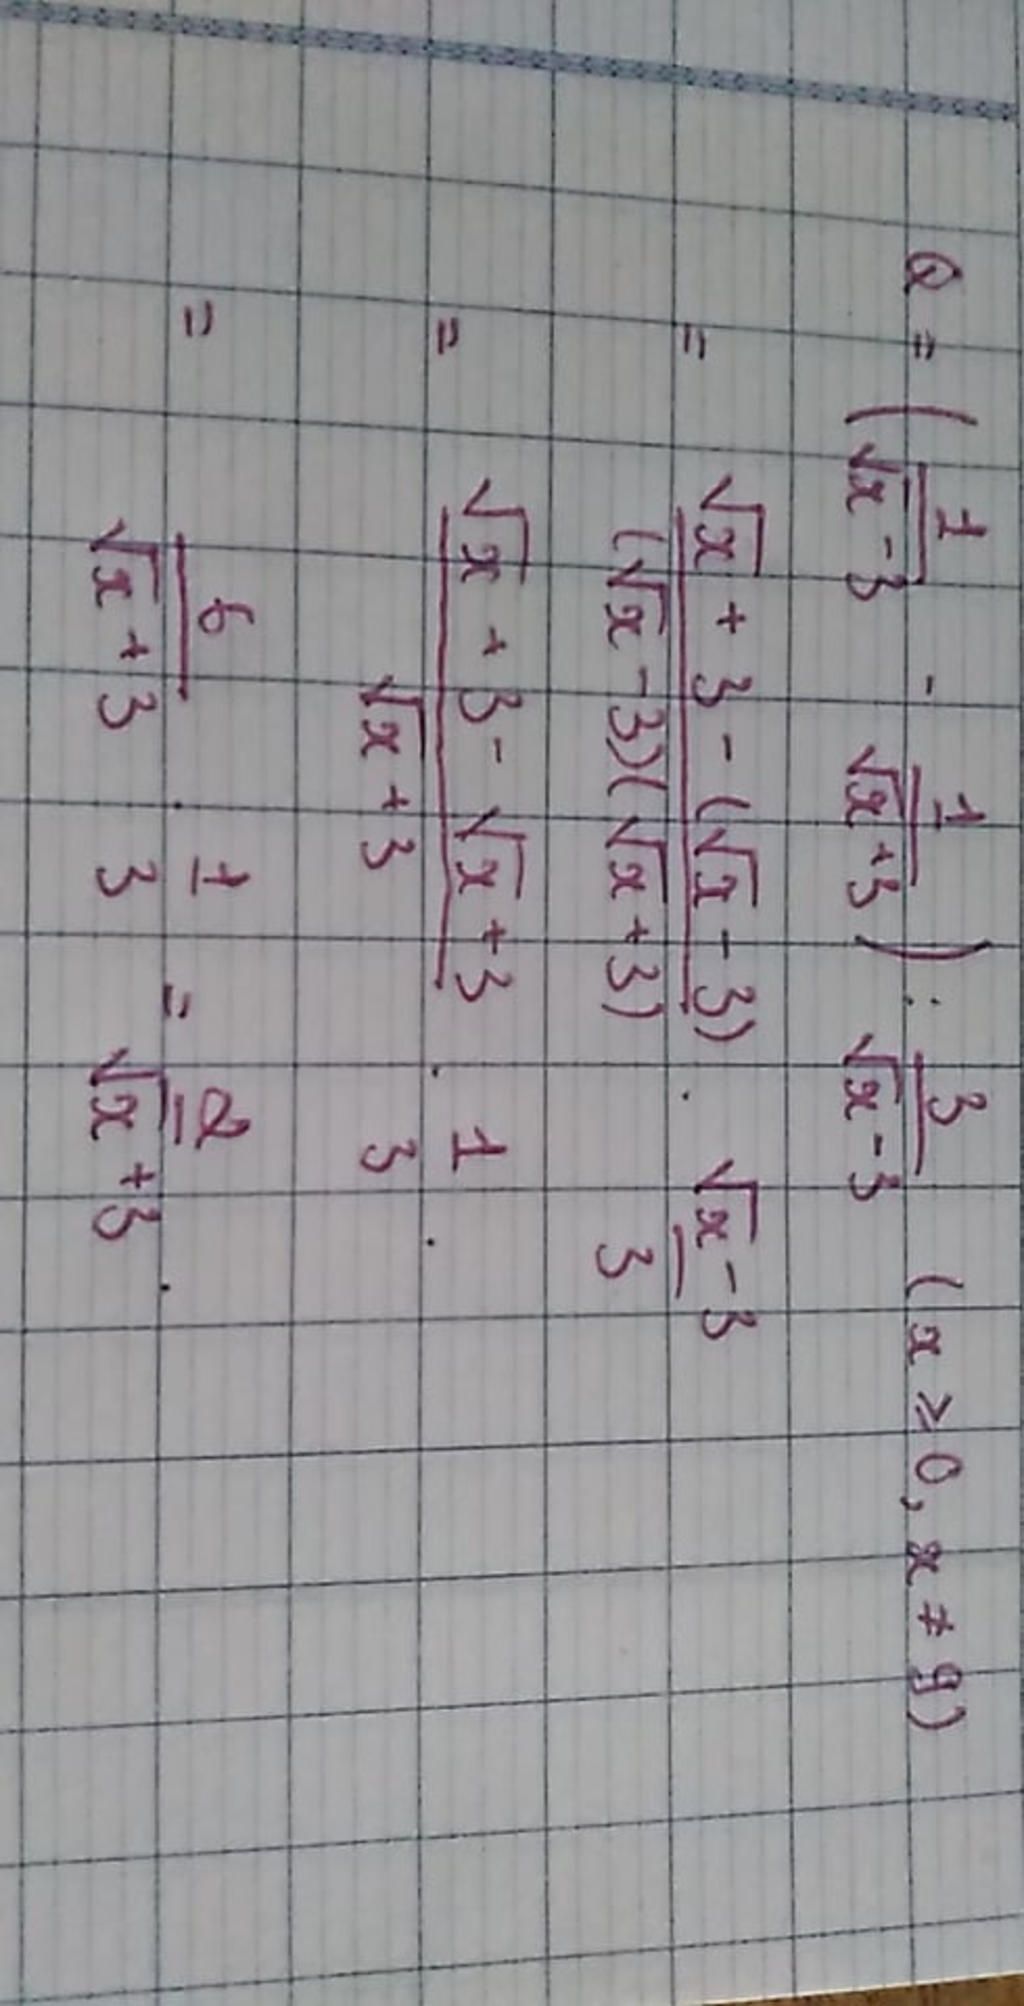 Q = ( 1/(√x - 3) - 1/(√x + 3) ) : 3/(√x - 3) (x ≥ 0, x ≠ 9)
= (√x + 3 - (√x - 3))/((√x - 3)(√x + 3)) . (√x - 3)/3
= (√x + 3 - √x + 3)/(√x + 3) . 1/3 .
= 6/(√x + 3) . 1/3 = 2/(√x + 3) .